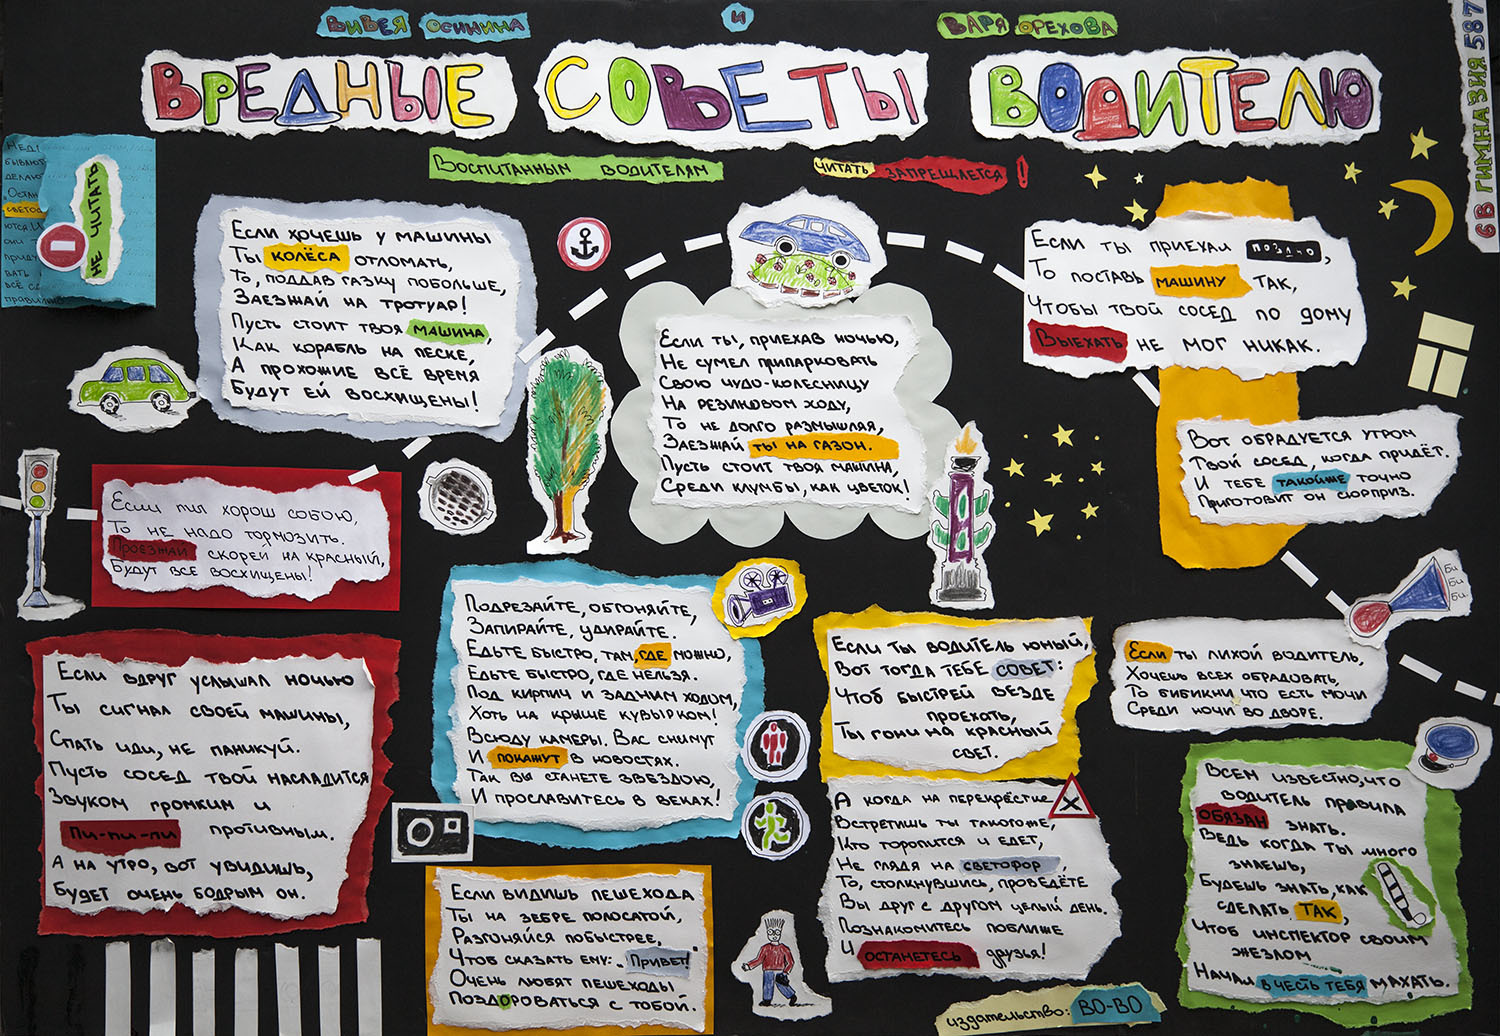 Вивея Осинина и Варя Орехова
6 В ГИМНАЗИЯ 587
ВРЕДНЫЕ СОВЕТЫ ВОДИТЕЛЮ
Воспитанным водителям читать запрещается!
НЕ ЧИТАТЬ
Если хочешь у машины
Ты колёса отломать,
То, поддав газку побольше,
Заезжай на тротуар!
Пусть стоит твоя машина,
Как корабль на песке,
А прохожие всё время
Будут ей восхищены!
Если ты, приехав ночью,
Не сумел припарковать
Свою чудо-колесницу
На резиновом ходу,
То не долго размышляя,
Заезжай ты на газон.
Пусть стоит твоя машина,
Среди клумбы, как цветок!
Если ты приехал поздно,
То поставь машину так,
Чтобы твой сосед по дому
Выехать не мог никак.
Вот обрадуется утром
Твой сосед, когда придёт.
И тебе такойже точно
Приготовит он сюрприз.
Если ты хорош собою,
То не надо тормозить.
Проезжай скорей на красный,
Будут все восхищены!
Если вдруг услышал ночью
Ты сигнал своей машины,
Спать иди, не паникуй.
Пусть сосед твой насладится
Звуком громким и
Пи-пи-пи противным.
А на утро, вот увидишь,
Будет очень бодрым он.
Подрезайте, обгоняйте,
Запирайте, удирайте.
Едьте быстро, там, где можно,
Едьте быстро, где нельзя.
Под кирпич и задним ходом,
Хоть на крыше кувырком!
Всюду камеры. Вас снимут
И покажут в новостях.
Так вы станете звездою,
И прославитесь в веках!
Если видишь пешехода
Ты на зебре полосатой,
Разгоняйся побыстрее,
Чтоб сказать ему: Привет!
Очень любят пешеходы
Поздороваться с тобой.
Если ты водитель юный,
Вот тогда тебе совет:
Чтоб быстрей везде
проехать,
Ты гони на красный
свет.
А когда на перекрёстке
Встретишь ты такогоже,
Кто торопится и едет,
Не глядя на светофор,
То, столкнувшись, проведёте
Вы друг с другом целый день.
Познакомитесь поближе
И останетесь друзья!
Би
Би
Би.
Если ты лихой водитель,
Хочешь всех обрадовать,
То бибикни что есть мочи
Среди ночи во дворе.
Всем известно, что
водитель правила
обязан знать.
Ведь когда ты много
знаешь,
Будешь знать, как
сделать так,
Чтоб инспектор своим
жезлом
Начал в честь тебя махать.
издательство: ВО-ВО